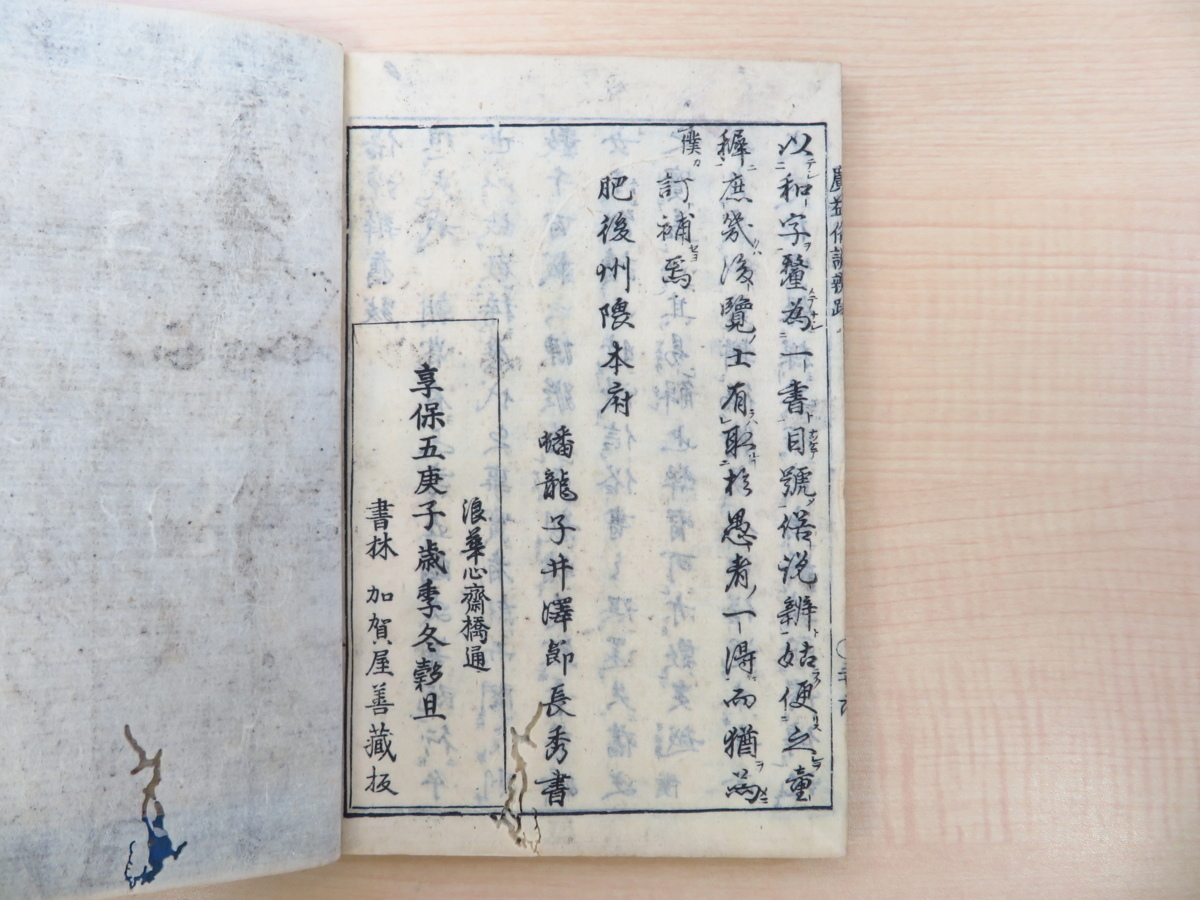 以和字釐為一書目號俗説辨姑便之童
穉庶幾後覽士有取於愚者一得而猶為
僕訂補焉
肥後州隈本府
蟠龍子井澤節長秀書
浪華心齋橋通
享保五庚子歳季冬穀旦
書林 加賀屋善藏板